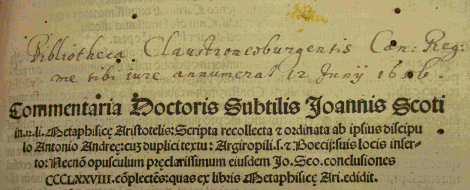 Bibliotheca Claustroneoburgensis Can: Reg:
me sibi iure annumerat 12 Junij 1656.
Commentaria Doctoris Subtilis Joannis Scoti
in .xii. li. Metaphisice Aristotelis: Scripta recollecta ⁊ ordinata ab ipsius discipu
lo Antonio Andree: cũ duplici textu: Argiropili .s. ⁊ Boecij: suis locis inser-
to: Necnõ opusculum pręclarissimum eiusdem Jo. Sco. conclusiones
CCCLXXVIII. cõplectẽs: quas ex libris Metaphisice Ari. edidit.